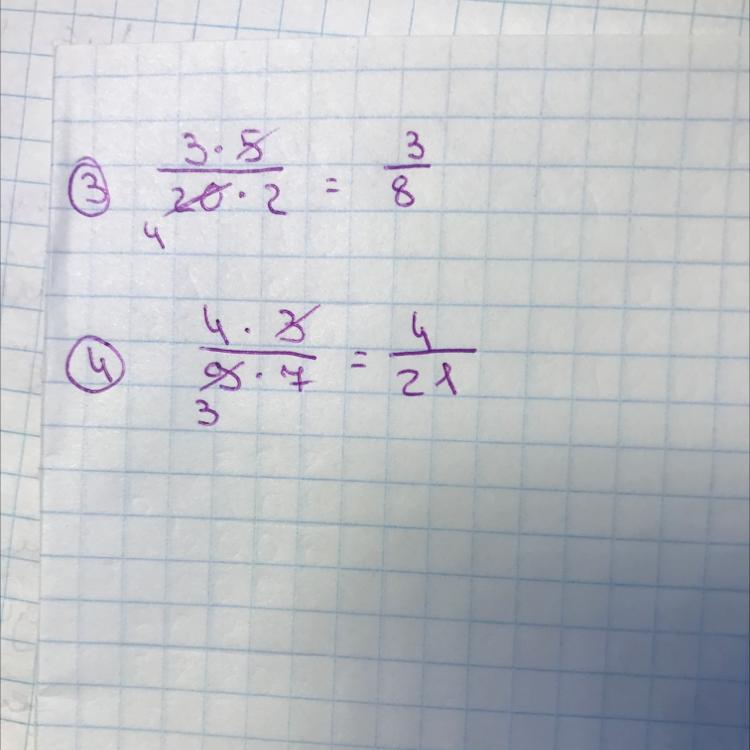 ③ 3 · 5 / 20 · 2 = 3 / 8
4
④ 4 · 3 / 9 · 7 = 4 / 21
3